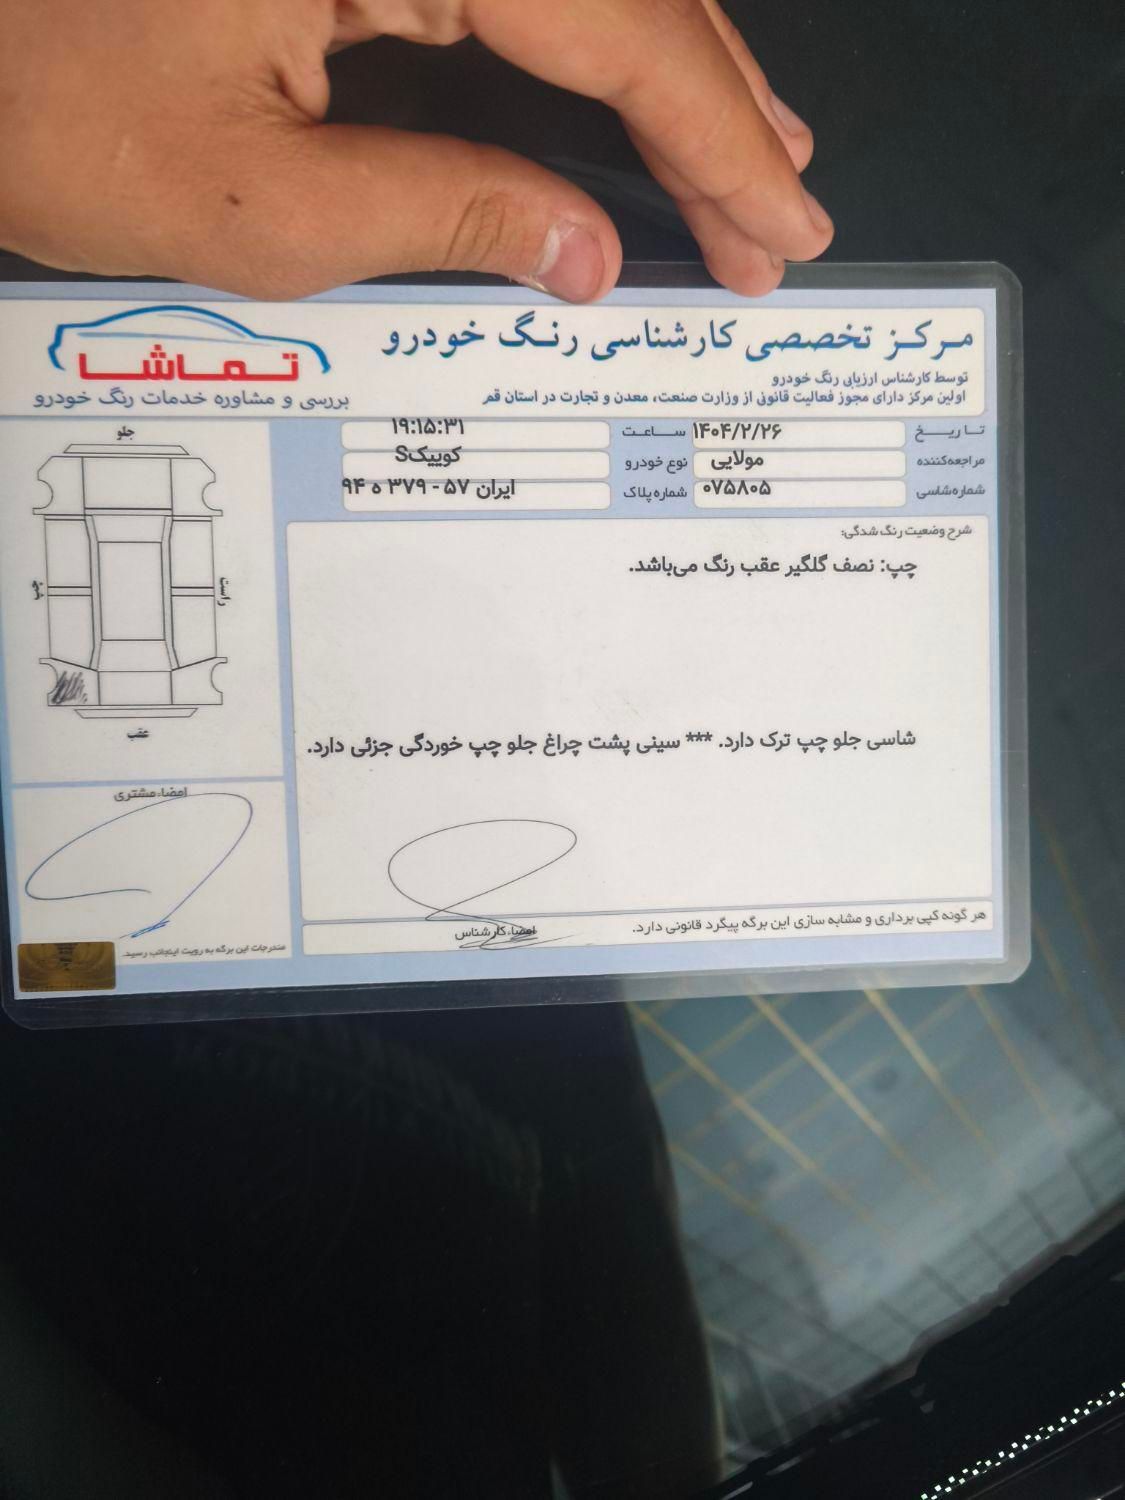 مرکز تخصصی کارشناسی رنگ خودرو
توسط کارشناس ارزیابی رنگ خودرو
اولین مرکز دارای مجوز فعالیت قانونی از وزارت صنعت، معدن و تجارت در استان قم
تماشا
بررسی و مشاوره خدمات رنگ خودرو
تاریخ ۱۴۰۴/۲/۲۶ ساعت ۱۹:۱۵:۳۱
مراجعه‌کننده مولایی نوع خودرو کوییکS
شماره‌شاسی ۰۷۵۸۰۵ شماره پلاک ایران ۵۷ - ۳۷۹ ه ۹۴
شرح وضعیت رنگ شدگی:
چپ: نصف گلگیر عقب رنگ می‌باشد.
شاسی جلو چپ ترک دارد. *** سینی پشت چراغ جلو چپ خوردگی جزئی دارد.
هر گونه کپی برداری و مشابه سازی این برگه پیگرد قانونی دارد.
امضاء کارشناس
جلو
راست
چپ
عقب
امضاء مشتری
مندرجات این برگه به رویت اینجانب رسید.